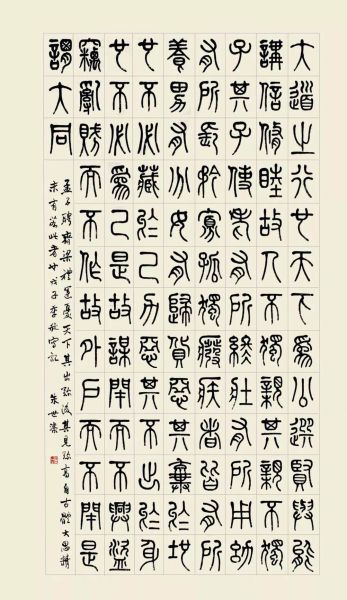 大道之行也天下為公選賢與能
講信脩睦故人不獨親其親不獨
子其子使老有所終壯有所用幼
有所長矜寡孤獨廢疾者皆有所
養男有分女有歸貨惡其棄於地
也不必藏於己力惡其不出於身
也不必為己是故謀閉而不興盜
竊亂賊而不作故外戶而不閉是
謂大同
孟子騁齊梁禮運憂天下其出後其見高自古體大思精
未有若此者也戊子季秋 朱世